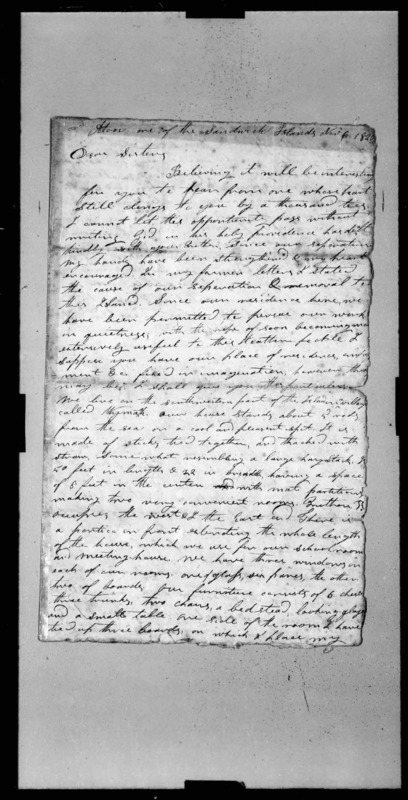 one of the Sandwich Islands Nov 6, 182
Dear Sisters,
Believing it will be interesting
for you to hear from one whose heart
still clings to you by a thousand ties
I cannot let this opportunity pass without
writing. God in his holy providence has dealt
kindly with Sister, since our separation
my hands have been strengthened & my heart
encouraged. In my former letters I stated
the cause of our separation & removal to
this Island. Since our residence here, we
have been permitted to pursue our work
in quietness, with the hope of soon becoming more
extensively useful to this heathen people. I
suppose you have our place of residence,
ment &c fixed in imagination, however this
may be, I shall give you
We live on the southwestern part of the Island in a village
called our house stands about 2 rods
from the sea on a cool and pleasant spot. It is
made of sticks tied together, and thached with
straw, some what resembling a large haystack. It is
50 feet in length, & 22 in breadth, having a space
of 8 feet in the center with mat partitions
making two very convenient rooms. Brother
occupies the west & I the East end. There is
a portico in front extending the whole length
of the house, which we use for our school room
and meeting house. We have three windows in
each of our rooms, one of glass, six panes, the other
two of boards. Our furniture consists of 6 chests
three trunks, two chairs, a bedstead, looking glass
and a small table. One side of the room I have
tied up three boards, on which I place my